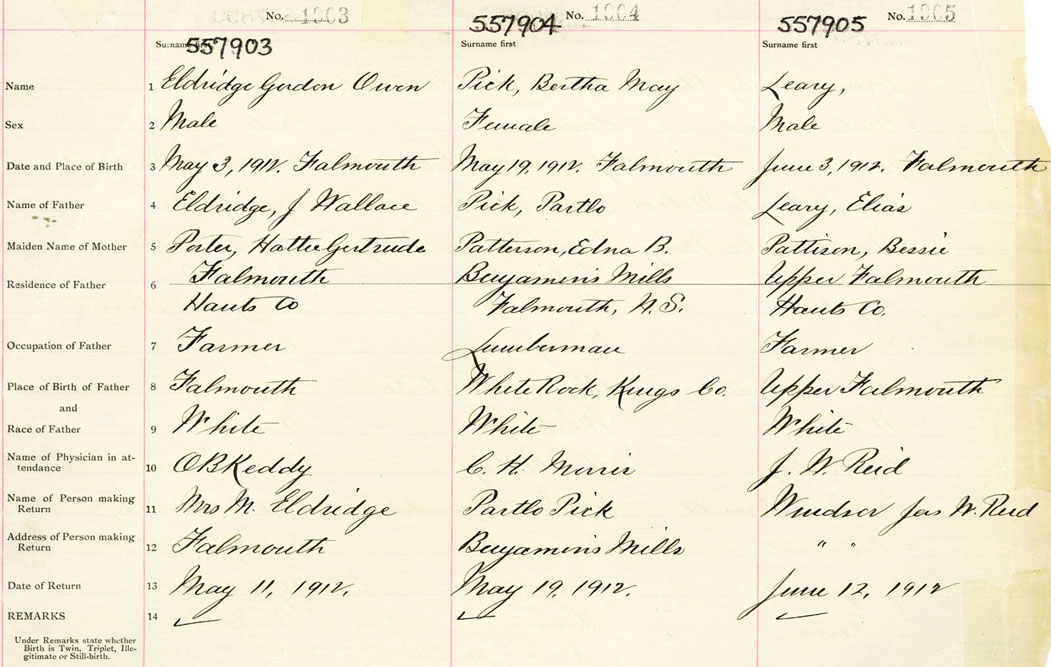 No. 1903 No. 1904 No. 1905
557903 557904 557905
Surname first Surname first Surname first
Name 1 Eldridge Gordon Owen Pick, Bertha May Leary,
Sex 2 Male Female Male
Date and Place of Birth 3 May 3, 1912. Falmouth May 19, 1912. Falmouth June 3, 1912. Falmouth
Name of Father 4 Eldridge, J Wallace Pick, Partlo Leary, Elias
Maiden Name of Mother 5 Porter, Hattie Gertrude Patterson, Edna B. Pattison, Bessie
Residence of Father 6 Falmouth Benjamins Mills Upper Falmouth
Hants Co Falmouth, N.S. Hants Co.
Occupation of Father 7 Farmer Lumberman Farmer
Place of Birth of Father 8 Falmouth White Rock, Kings Co. Upper Falmouth
and
Race of Father 9 White White White
Name of Physician in at-
tendance 10 O B Keddy C. H. Morris J. W. Reid
Name of Person making
Return 11 Mrs M. Eldridge Partlo Pick Windsor Jas W. Reid
Address of Person making
Return 12 Falmouth Benjamins Mills " "
Date of Return 13 May 11, 1912. May 19, 1912. June 12, 1912
REMARKS 14
Under Remarks state whether
Birth is Twin, Triplet, Ille-
gitimate or Still-birth.